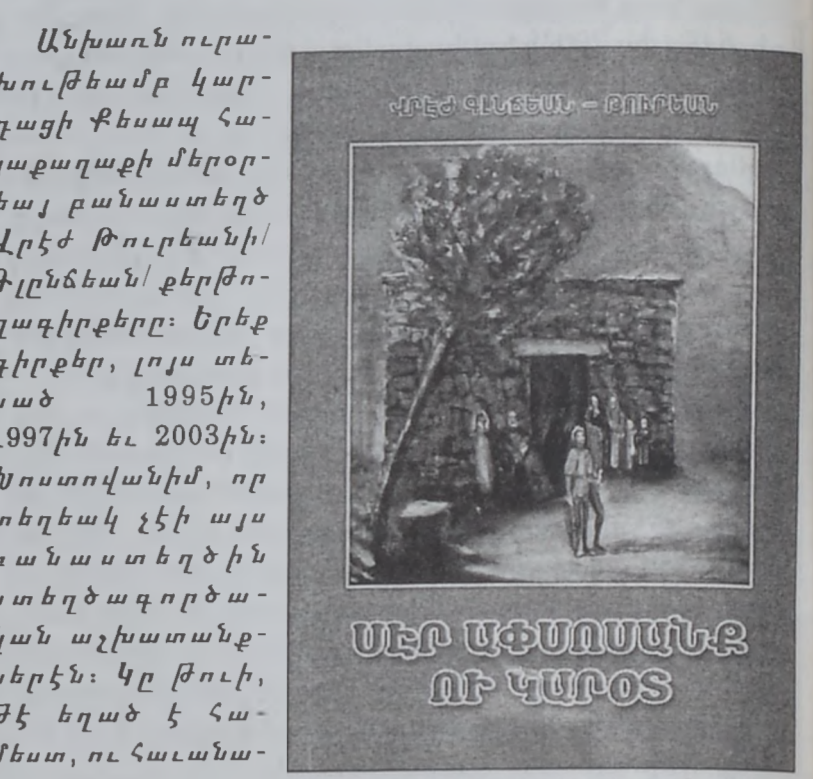 Անխառն ուրա-
խութեամբ կար-
դացի Քեսապ հա-
յաքաղաքի մերօր-
եայ բանաստեղծ
Վրէժ Թուրեանի/
Գլընճեան/ քերթո-
ղագիրքերը։ Երեք
գիրքեր, լոյս տե-
սած 1995ին,
1997ին եւ 2003ին։
Խոստովանիմ, որ
տեղեակ չէի այս
բանաստեղծին
ստեղծագործա-
կան աշխատանք-
ներէն։ Կը թուի,
թէ եղած է հա-
մեստ, ու հաւանա-
ՎՐԷԺ ԳԼՆՃԵԱՆ – ԹՈՒՐԵԱՆ
ՍԷՐ ԱՓՍՈՍԱՆՔ
ՈՒ ԿԱՐՕՏ